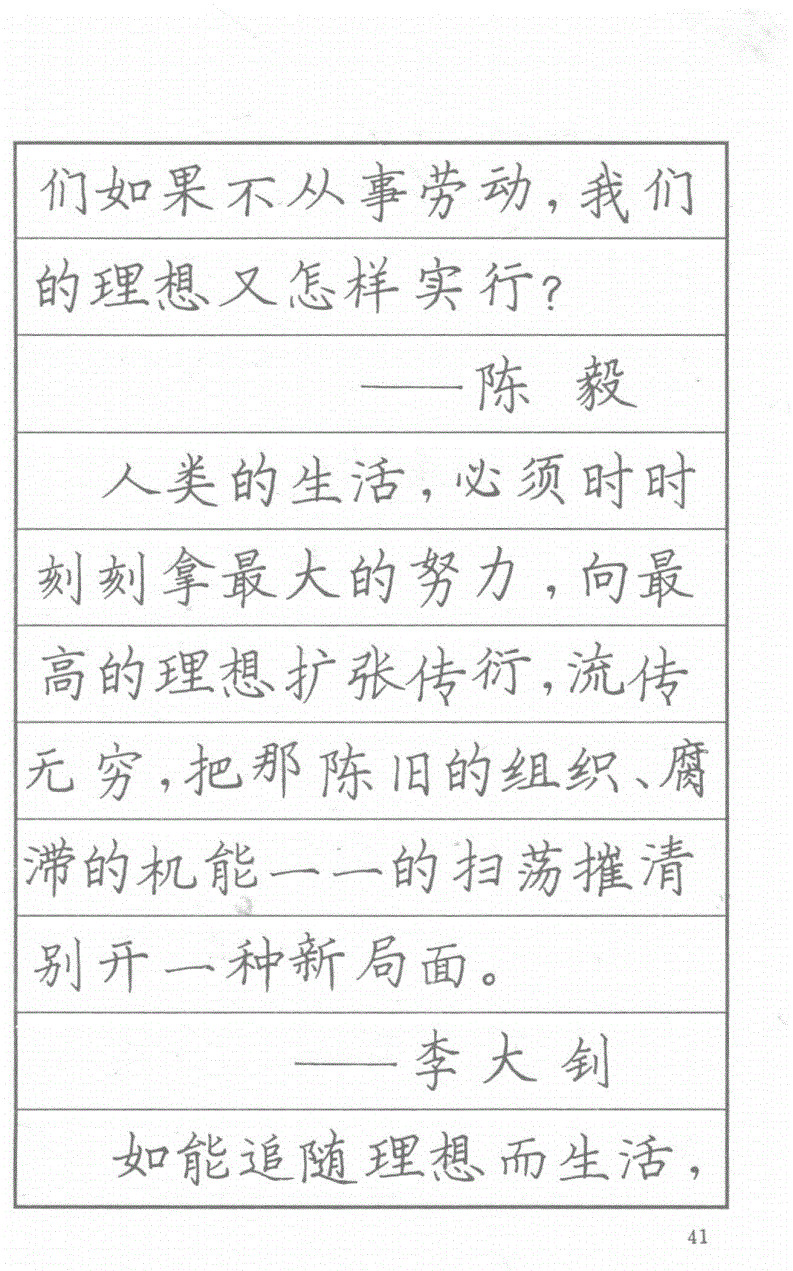 们如果不从事劳动，我们
的理想又怎样实行？
——陈 毅
人类的生活，必须时时
刻刻拿最大的努力，向最
高的理想扩张传衍，流传
无穷，把那陈旧的组织、腐
滞的机能一一的扫荡摧清
别开一种新局面。
——李大钊
如能追随理想而生活，
41